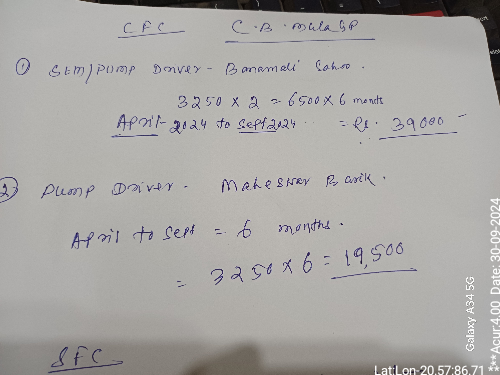 CFC C.B. Mula SP
① STM/Pump Driver - Banamali Sahoo.
3250 × 2 = 6500 × 6 month
April-2024 to Sept 2024 = Rs. 39000 -
2) Pump Driver. Maheswar Barik.
April to Sept = 6 months.
= 3250 × 6 = 19,500
SFC
Galaxy A34 5G
***Acur4.00 Date: 30-09-2024
Lat:Lon-20.57:86.71